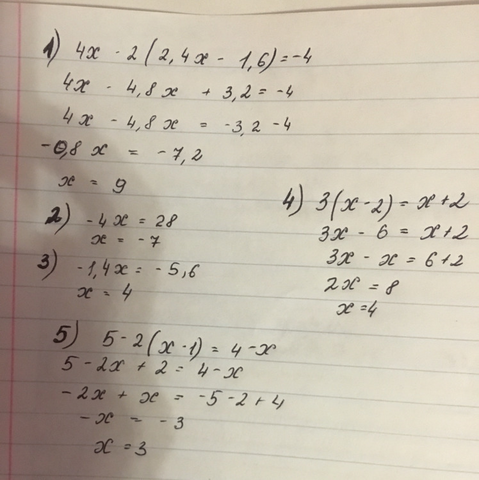 1) 4x - 2(2,4x - 1,6) = -4
4x - 4,8x + 3,2 = -4
4x - 4,8x = -3,2 - 4
-0,8x = -7,2
x = 9
2) -4x = 28
x = -7
3) -1,4x = -5,6
x = 4
4) 3(x-2) = x+2
3x - 6 = x+2
3x - x = 6+2
2x = 8
x = 4
5) 5 - 2(x-1) = 4-x
5 - 2x + 2 = 4-x
-2x + x = -5-2+4
-x = -3
x = 3